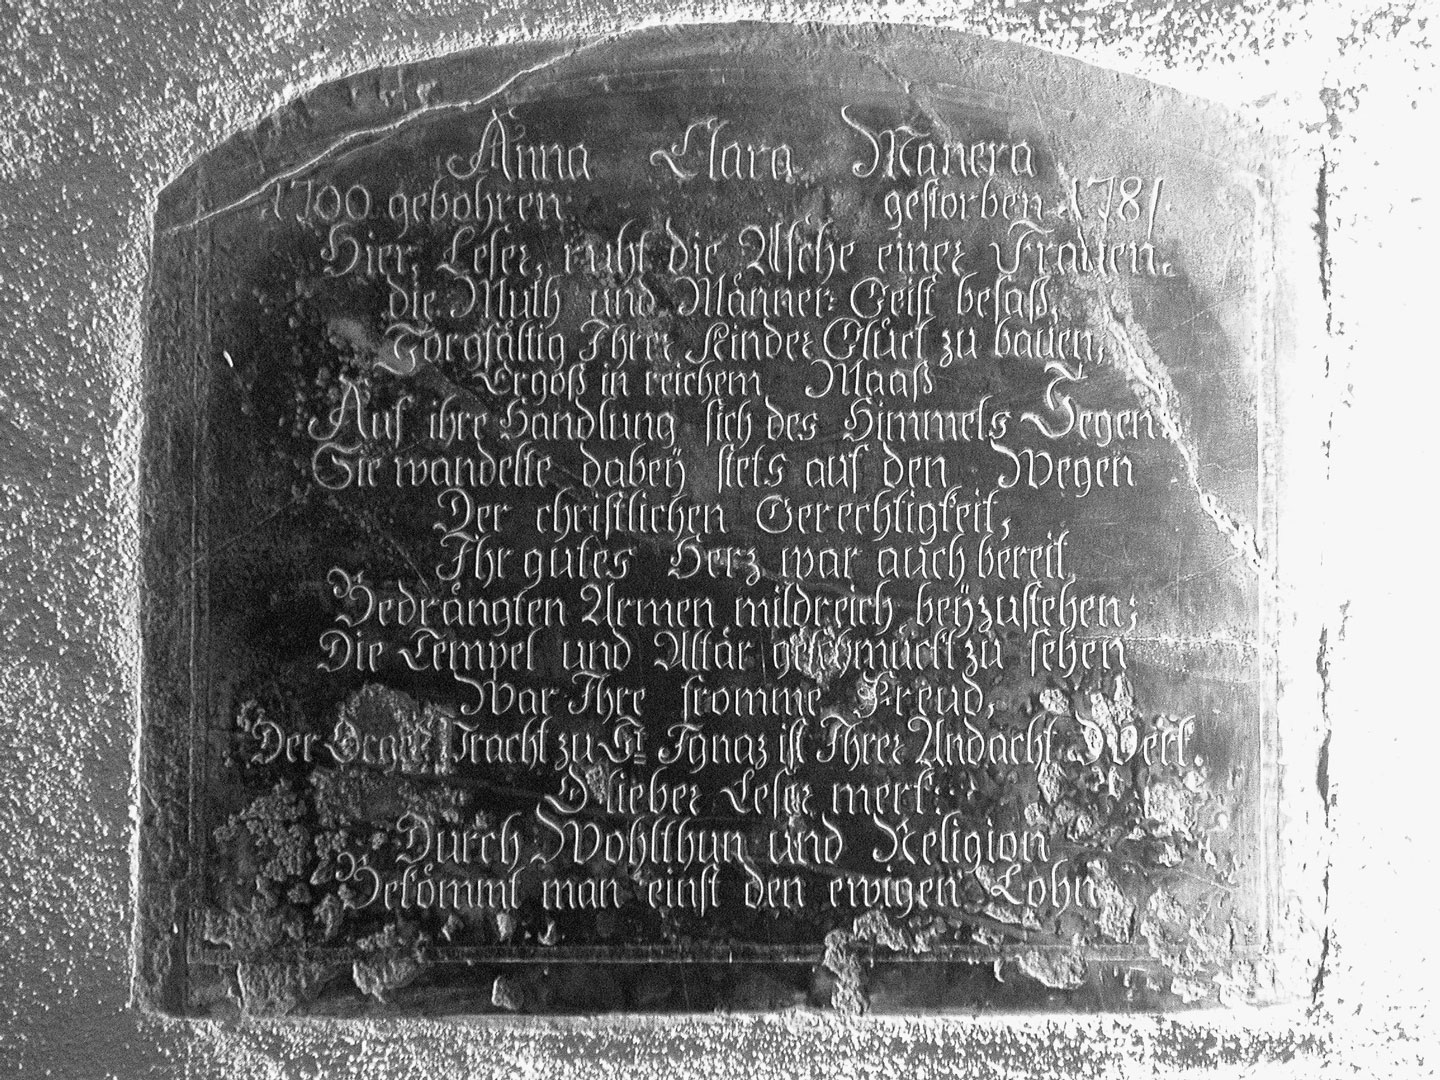 Anna Clara Manera
1700 gebohren gestorben 1781.
Hier, Leser, ruht die Asche einer Frauen.
die Muth und Männer-Geist besaß,
Sorgfältig Ihrer Kinder Glück zu bauen,
Ergoß in reichem Maaß
Auf ihre Handlung sich des Himmels Segen.
Sie wandelte dabeÿ stets auf den Wegen
Der christlichen Gerechtigkeit,
Ihr gutes Herz war auch bereit,
Bedrängten Armen mildreich beÿzustehen;
Die Tempel und Altär geschmückt zu sehen
War Ihre fromme Freud,
Der Orgel Tracht zu St Ignaz ist Ihrer Andacht Werk
O lieber Leser merk:
Durch Wohlthun und Religion
Bekömmt man einst den ewigen Lohn